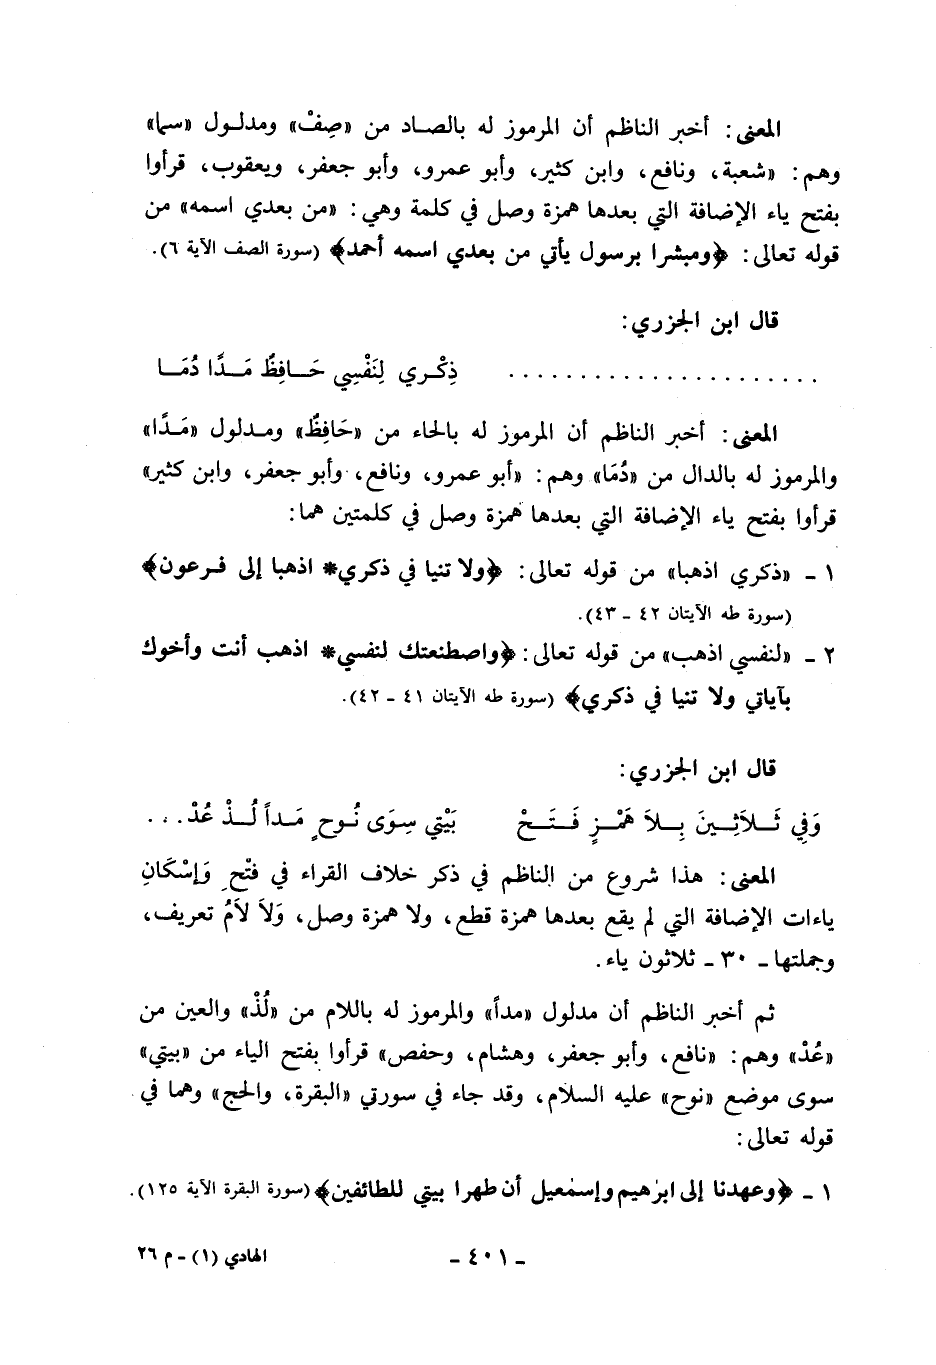 المعنى: أخبر الناظم أن المرموز له بالصاد من «صِفْ» ومدلول «سما»
وهم: «شعبة، ونافع، وابن كثير، وأبو عمرو، وأبو جعفر، ويعقوب، قرأوا
بفتح ياء الإضافة التي بعدها همزة وصل في كلمة وهي: «من بعدي اسمه» من
قوله تعالى: ﴿ومبشرا برسول يأتي من بعدي اسمه أحمد﴾ (سورة الصف الآية ٦).
قال ابن الجزري:
. . . . . . . . . . . . . . . . . . . . . . ذِكْري لِنَفْسِي حَافِظٌ مَدًّا دُمَا
المعنى: أخبر الناظم أن المرموز له بالحاء من «حَافِظٌ» ومدلول «مَدًّا»
والمرموز له بالدال من «دُمَا» وهم: «أبو عمرو، ونافع، وأبو جعفر، وابن كثير»
قرأوا بفتح ياء الإضافة التي بعدها همزة وصل في كلمتين هما:
١ ـ «ذكري اذهبا» من قوله تعالى: ﴿ولا تنيا في ذكري* اذهبا إلى فرعون﴾
(سورة طه الآيتان ٤٢ ـ ٤٣).
٢ ـ «لنفسي اذهب» من قوله تعالى: ﴿واصطنعتك لنفسي* اذهب أنت وأخوك
بآياتي ولا تنيا في ذكري﴾ (سورة طه الآيتان ٤١ ـ ٤٢).
قال ابن الجزري:
وَفِي ثَلاَثِينَ بِلاَ هَمْزٍ فَتَحْ بَيْتِي سِوَى نُوحٍ مَداً لُذْ عُدْ. . .
المعنى: هذا شروع من الناظم في ذكر خلاف القراء في فتْحِ وَإسْكَانِ
ياءات الإضافة التي لم يقع بعدها همزة قطع، ولا همزة وصل، وَلاَ لاَمُ تعريف،
وجملتها ـ ٣٠ ـ ثلاثون ياء.
ثم أخبر الناظم أن مدلول «مداً» والمرموز له باللام من «لُذْ» والعين من
«عُدْ» وهم: «نافع، وأبو جعفر، وهشام، وحفص» قرأوا بفتح الياء من «بيتي»
سوى موضع «نوح» عليه السلام، وقد جاء في سورتي «البقرة، والحج» وهما في
قوله تعالى:
١ ـ ﴿وعهدنا إلى ابرٰهيم وإسمٰعيل أن طهرا بيتي للطائفين﴾ (سورة البقرة الآية ١٢٥).
ـ ٤٠١ ـ
الهادي (١) ـ م ٢٦